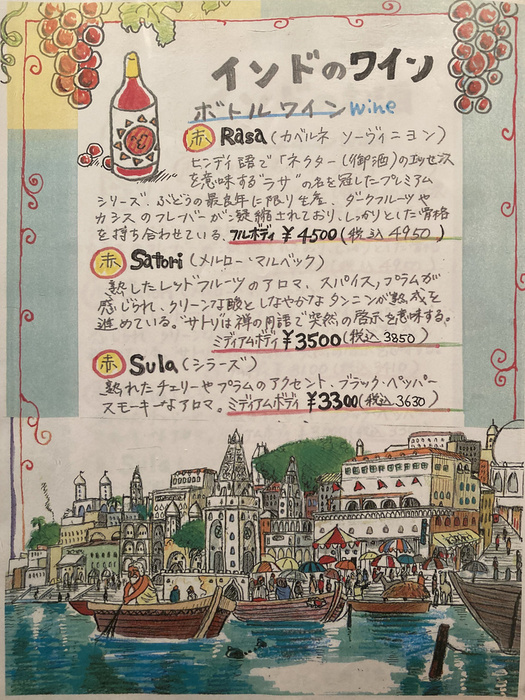 インドのワイン
ボトルワイン wine
赤 Rasa (カベルネ ソーヴィニヨン)
ヒンディ語で「ネクター(御酒)のエッセンス
を意味する"ラサ"の名を冠したプレミアム
シリーズ、ぶどうの最良年に限り生産、ダークフルーツや
カシスのフレーバーが凝縮されており、しっかりとした骨格
を持ち合わせている、フルボディ ¥4500(税込 4950)
赤 Satori (メルロー・マルベック)
熟したレッドフルーツのアロマ、スパイス,プラムが
感じられ、クリーンな酸としなやかなタンニンが熟成を
進めている。"サトリは禅の用語で突然の啓示を意味する。
ミディアムボディ ¥3500(税込 3850)
赤 Sula (シラーズ)
熟れたチェリーやプラムのアクセント、ブラック・ペッパー
スモーキーなアロマ。ミディアムボディ ¥3300(税込 3630)